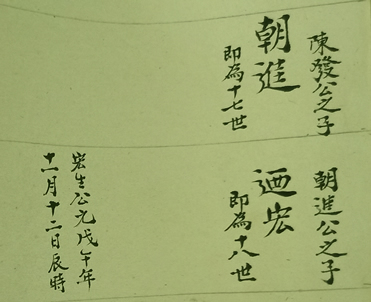 陳發公之子
朝進
即為十七世
朝進公之子
迺宏
即為十八世
宏生公元戊午年
十一月十二日辰時